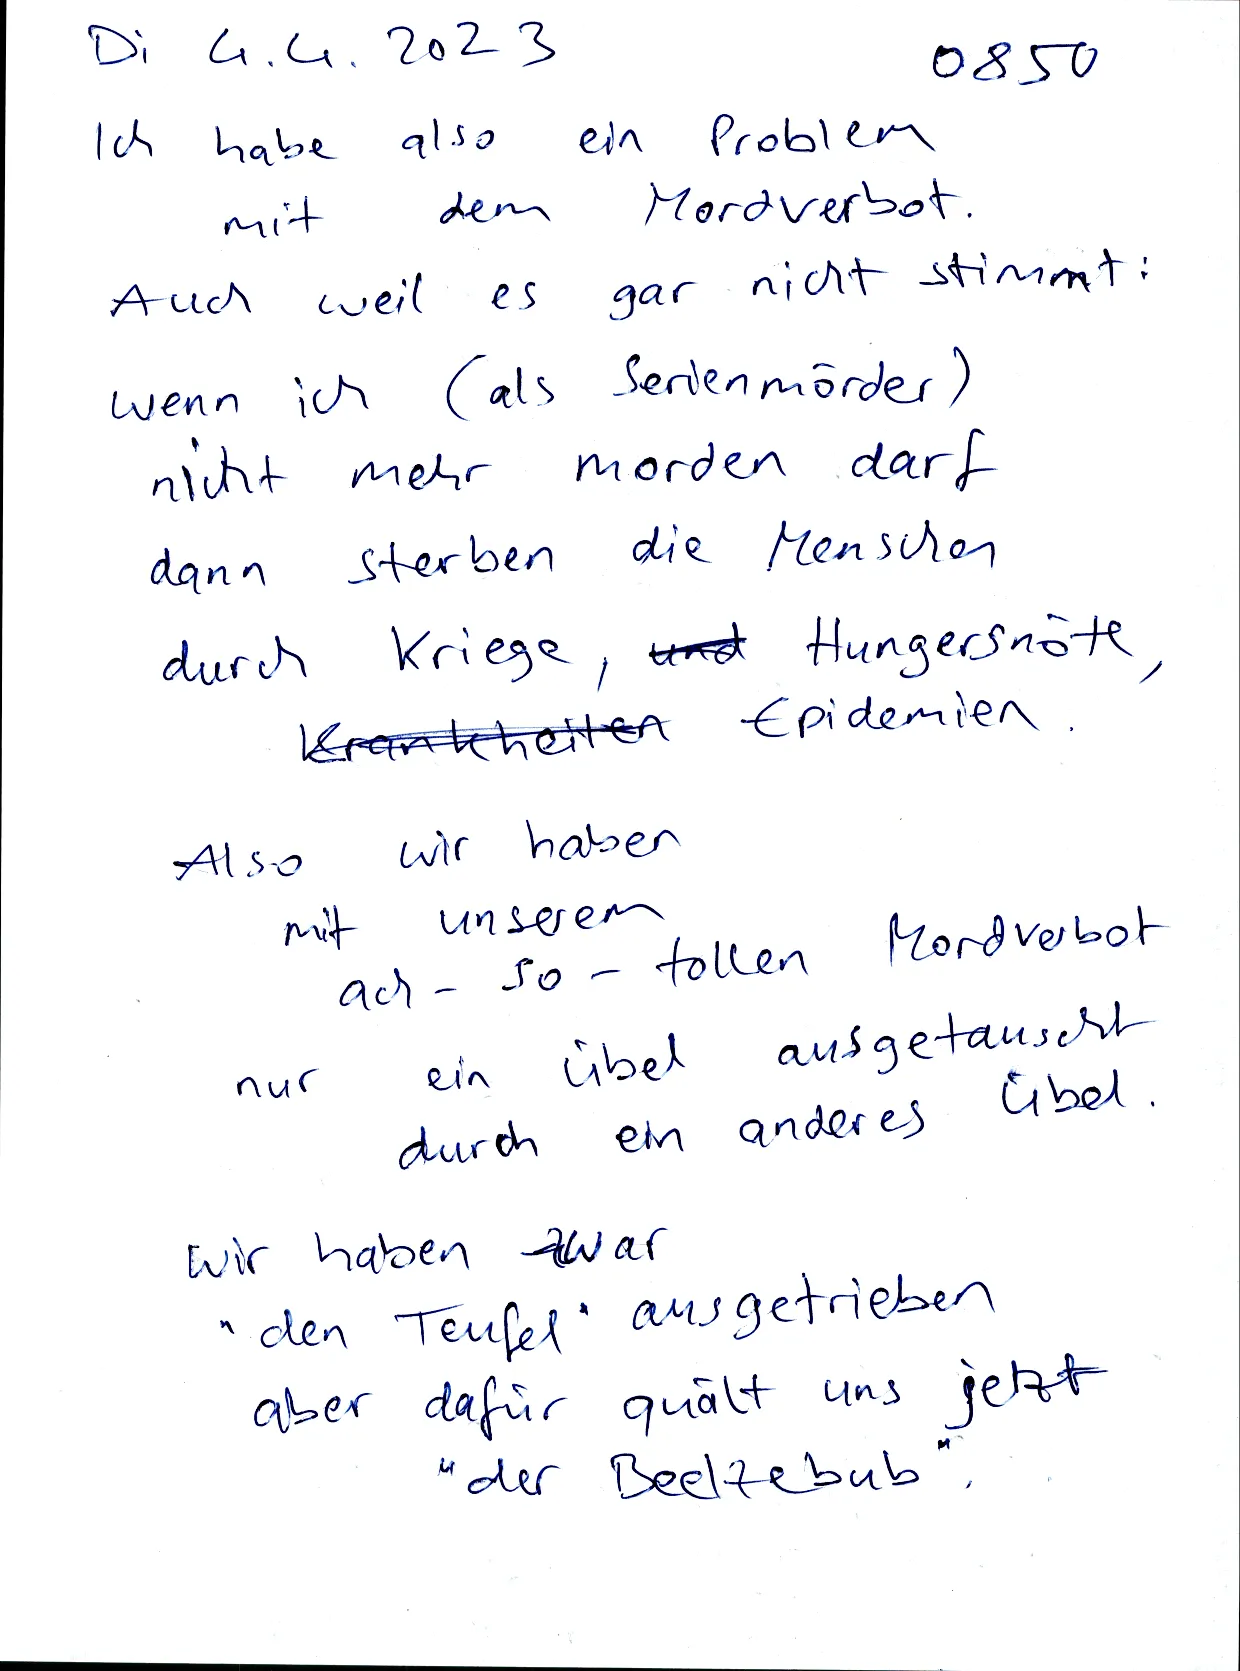 Di 4.4.2023 0850
Ich habe also ein Problem
mit dem Mordverbot.
Auch weil es gar nicht stimmt:
wenn ich (als Serienmörder)
nicht mehr morden darf
dann sterben die Menschen
durch Kriege, und Hungersnöte,
Krankheiten Epidemien.
Also wir haben
mit unserem
ach-so-tollen Mordverbot
nur ein Übel ausgetauscht
durch ein anderes Übel.
Wir haben zwar
"den Teufel" ausgetrieben
aber dafür quält uns jetzt
"der Beelzebub".